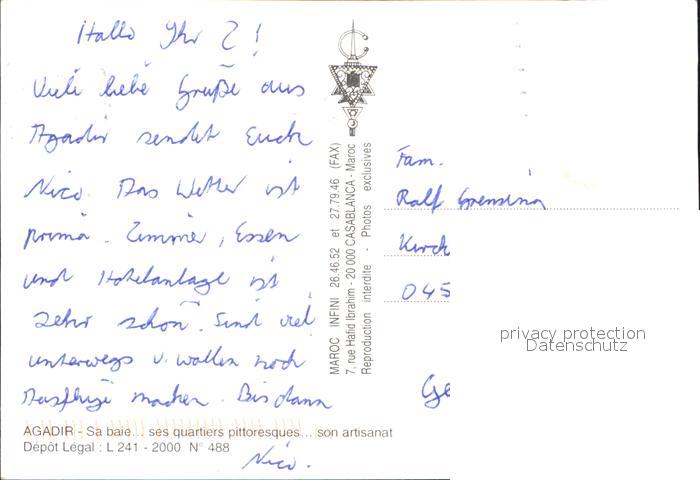 Hallo Ihr 2!
Viele liebe Grüße aus
Agadir sendet Euch
Nico. Das Wetter ist
prima. Zimmer, Essen
und Hotelanlage ist
sehr schön. Sind viel
unterwegs u. wollen noch
Ausflüge machen. Bis dann
Nico.
AGADIR - Sa baie... ses quartiers pittoresques... son artisanat
Dépôt Légal : L 241 - 2000 N° 488
MAROC INFINI 26.46.52 et 27.79.46 (FAX)
7, rue Hafid Ibrahim - 20 000 CASABLANCA - Maroc
Reproduction interdite - Photos exclusives
Fam.
Ralf
Kirch
045
Ge
privacy protection
Datenschutz